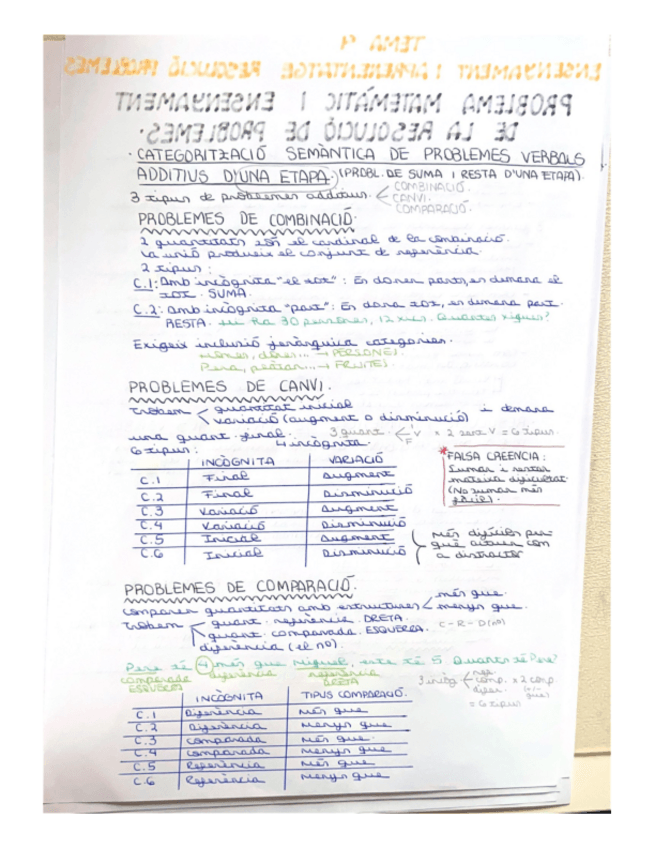 TEMA 4
ENSENYAMENT I APRENENTATGE RESOLUCIÓ PROBLEMES
PROBLEMA MATEMÀTIC I ENSENYAMENT
DE LA RESOLUCIÓ DE PROBLEMES.
· CATEGORITZACIÓ SEMÀNTICA DE PROBLEMES VERBALS
ADDITIUS D'UNA ETAPA. (PROBL. DE SUMA I RESTA D'UNA ETAPA).
3 tipus de problemes additius. < COMBINACIÓ.
CANVI.
COMPARACIÓ.
PROBLEMES DE COMBINACIÓ.
2 quantitats són el cardinal de la combinació.
La unió produeix el conjunt de referència.
2 tipus:
C.1: Amb incògnita "el tot": Es donen parts, es demana el
tot. SUMA.
C.2: Amb incògnita "part": Es dona tot, es demana part.
RESTA. Ha 30 persones, 12 xics. Quantes xiques?
Exigeix inclusió jeràrquica categories.
Nenes, dones... → PERSONES.
Pera, plàtan... → FRUITES.
PROBLEMES DE CANVI.
Trobem < quantitat inicial
variació (augment o disminució) i demana
una quant. final. 3 quant. < I V F x 2 V = 6 tipus.
6 tipus: incògnita.
INCÒGNITA VARIACIÓ
C.1 Final Augment
C.2 Final Disminució
C.3 Variació Augment
C.4 Variació Disminució
C.5 Inicial Augment
C.6 Inicial Disminució
* FALSA CREENCIA:
Sumar i restar
mateixa dificultat
(No sumar més
fàcil).
Més difícils per-
què actuen com
a distractor
PROBLEMES DE COMPARACIÓ.
Comparen quantitats amb estructures < més que.
menys que.
Trobem < quant. referència. DRETA.
quant. comparada. ESQUERRA. C-R-D(nº)
diferència (el nº).
Pere té 4 més que Miquel, este té 5. Quants té Pere?
comparada diferència referència
ESQUERRA DRETA
3 incòg < ref. comp. difer. x 2 comp. (+/- que)
= 6 tipus
INCÒGNITA TIPUS COMPARACIÓ.
C.1 Diferència Més que
C.2 Diferència Menys que
C.3 Comparada Més que.
C.4 Comparada Menys que
C.5 Referència Més que
C.6 Referència Menys que